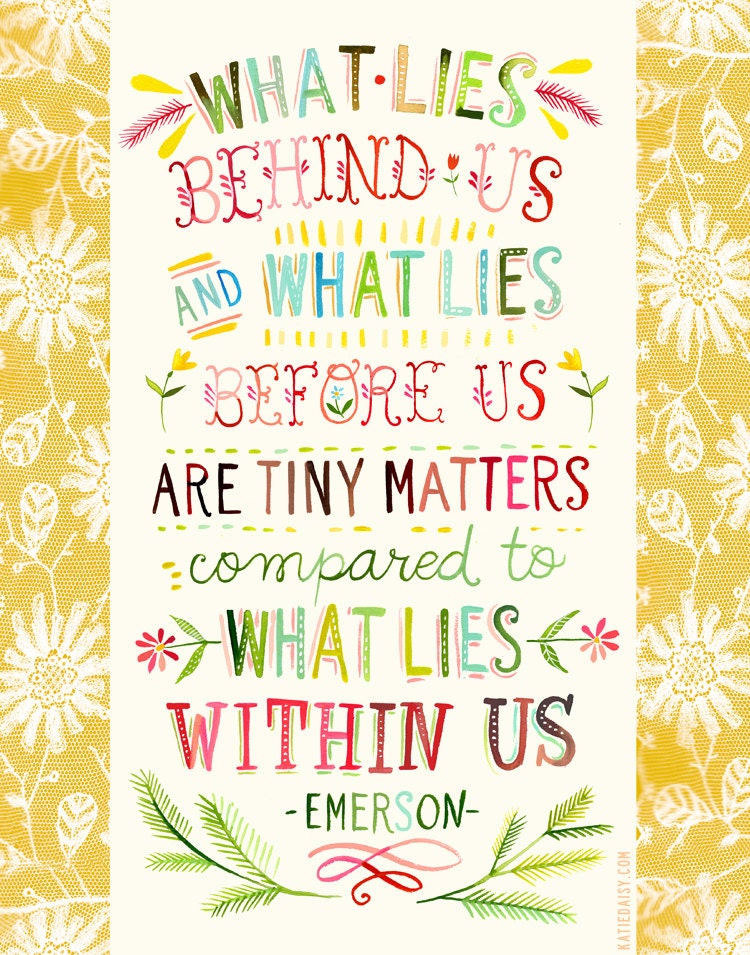 WHAT·LIES
BEHIND·US
AND WHAT LIES
BEFORE US
ARE TINY MATTERS
compared to
WHAT LIES
WITHIN US
-EMERSON-
KATIEDAISY.COM